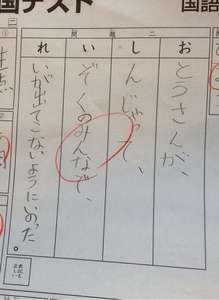 国テスト
国語
問題二
おとうさんが、
しんじゃって、
いぞくのみんなで、
れいが出てこないようにいのった。